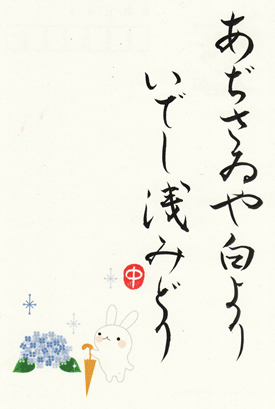 あぢさゐや白より
いでし浅みどり
中